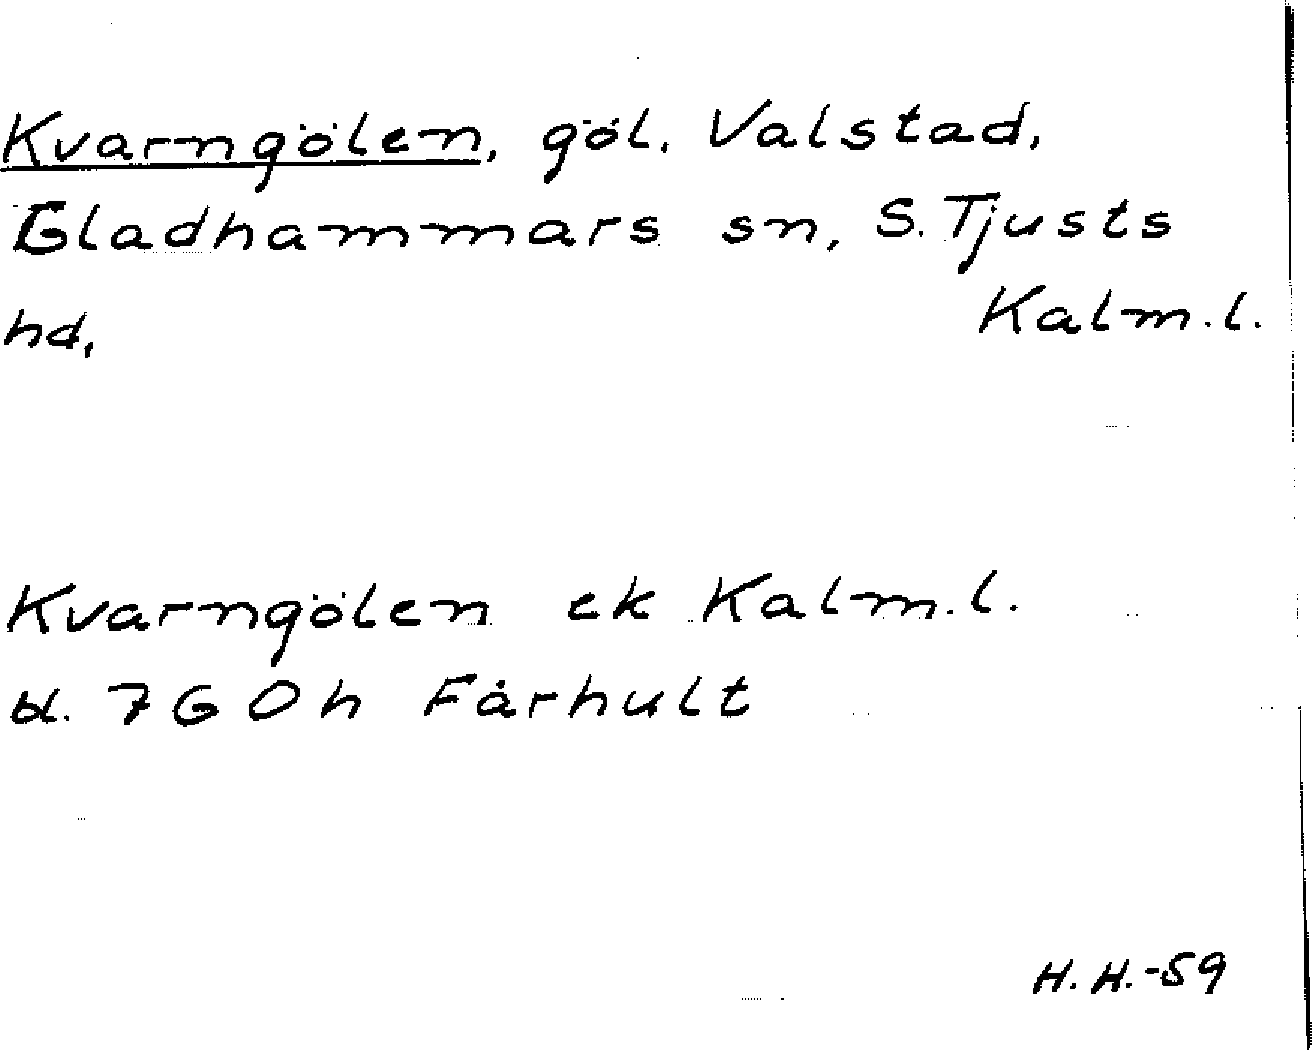 Kvarngölen, göl. Valstad,
Gladhammars sn, S. Tjusts
hd, Kalm. l.
Kvarngölen ek Kalm. l.
bl. 7G0h Fårhult
H. H. -59